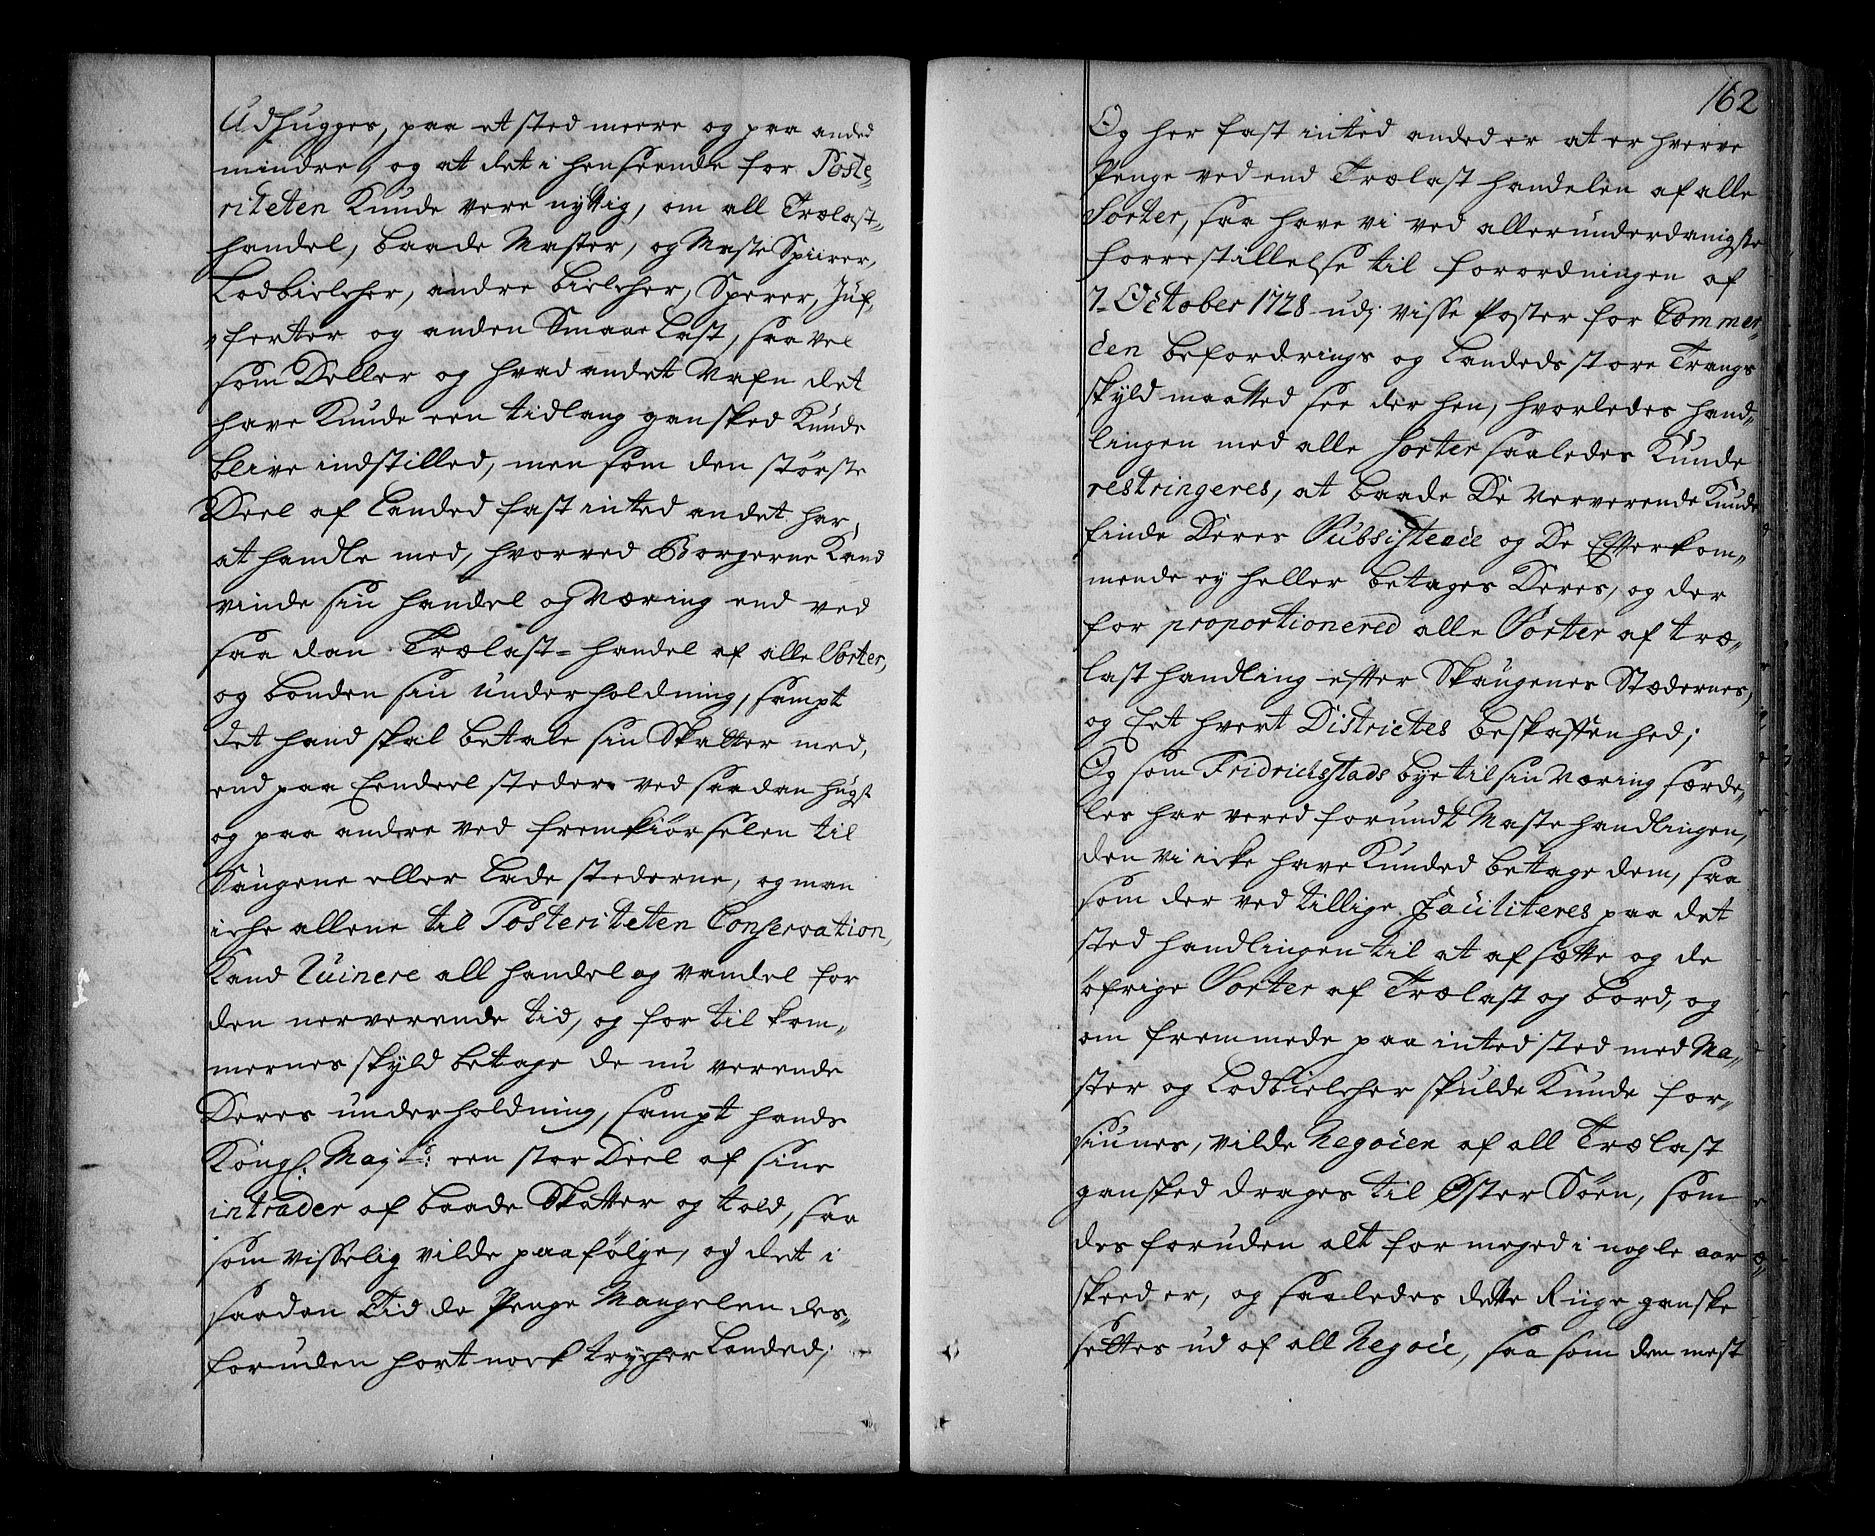 Udhugges, paa et sted meere og paa anded
mindre, og at det i henseende for Poste-
riteten Kunde vere nyttig, om all Trælast-
handel, baade Master, og Maste Spiirer,
Lodbielcher, andre bielcher, Sperer, Juf-
ferter og anden Smaae Last, saa vel
som Deller og hvad andet Nafn det
have Kunde een tidlang ganshed Kunde
blive indstilled, men som den største
Deel af Landed fast inted andet har,
at handle med, hvorved Borgerne Kand
vinde sin handel og Næring end ved
saadan Trælast-handel af alle Sorter,
og bonden sin underholdning, sampt
det hand skal betale sin Skatter med,
end paa Eendeel steder ved saadan hugst
og paa andere ved fremkiørselen til
Saugene eller Ladestederne, og man
iche allene til Posteriteten Conservation,
Kand Ruinere all handel og vandel for
den nerverende tid, og for til kom-
mernes skyld betage de nu verende
Deres underholdning, sampt hands
Kongl. Mayts: een stor Deel af sine
intrader af baade Skatter og told, saa
som visselig vilde paafølge, og det i
saadan Tid da Penge Mangelen des-
foruden hart nock trycher Landed;
162
Og her fast inted anded er at erhverve
Penge ved end Trælast handelen af alle
Sorter, saa have vi ved allerunderdanigste
forrestillelse til forordningen af
7. October 1728 udj visse Poster for Commer-
cen befordrings og Landeds store Trangs
skyld maatted see der hen, hvorledes hand-
lingen med alle Sorter saaledes Kunde
restringeres, at baade De Nerverende Kunde
finde Deres Subsistence og De Efterkom-
mende ey heller betages Deres, og der
for proportionered alle Sorter af træ-
last handling efter Skaugenes Stædernes,
og Eet hvert Districtes beskaffenhed;
Og som Fridrichsstads bye til sin Næring særde-
les har vered forundt Maste handlingen,
den vi icke have Kunded betage dem, saa
som der ved tillige Faciliteres paa det
sted handlingen til at afsætte og de
øfrige Sorter af Trælast og bord, og
om fremmede paa inted sted med Ma-
ster og Lodbielcher skulde Kunde for-
siunes, vilde Negocen af all Trælast
ganshed drages til Øster Søen, som
des foruden alt for meged i nogle aar
skeed er, og saaledes dette Riige ganske
settes ud af all Negoce, saa som den mest